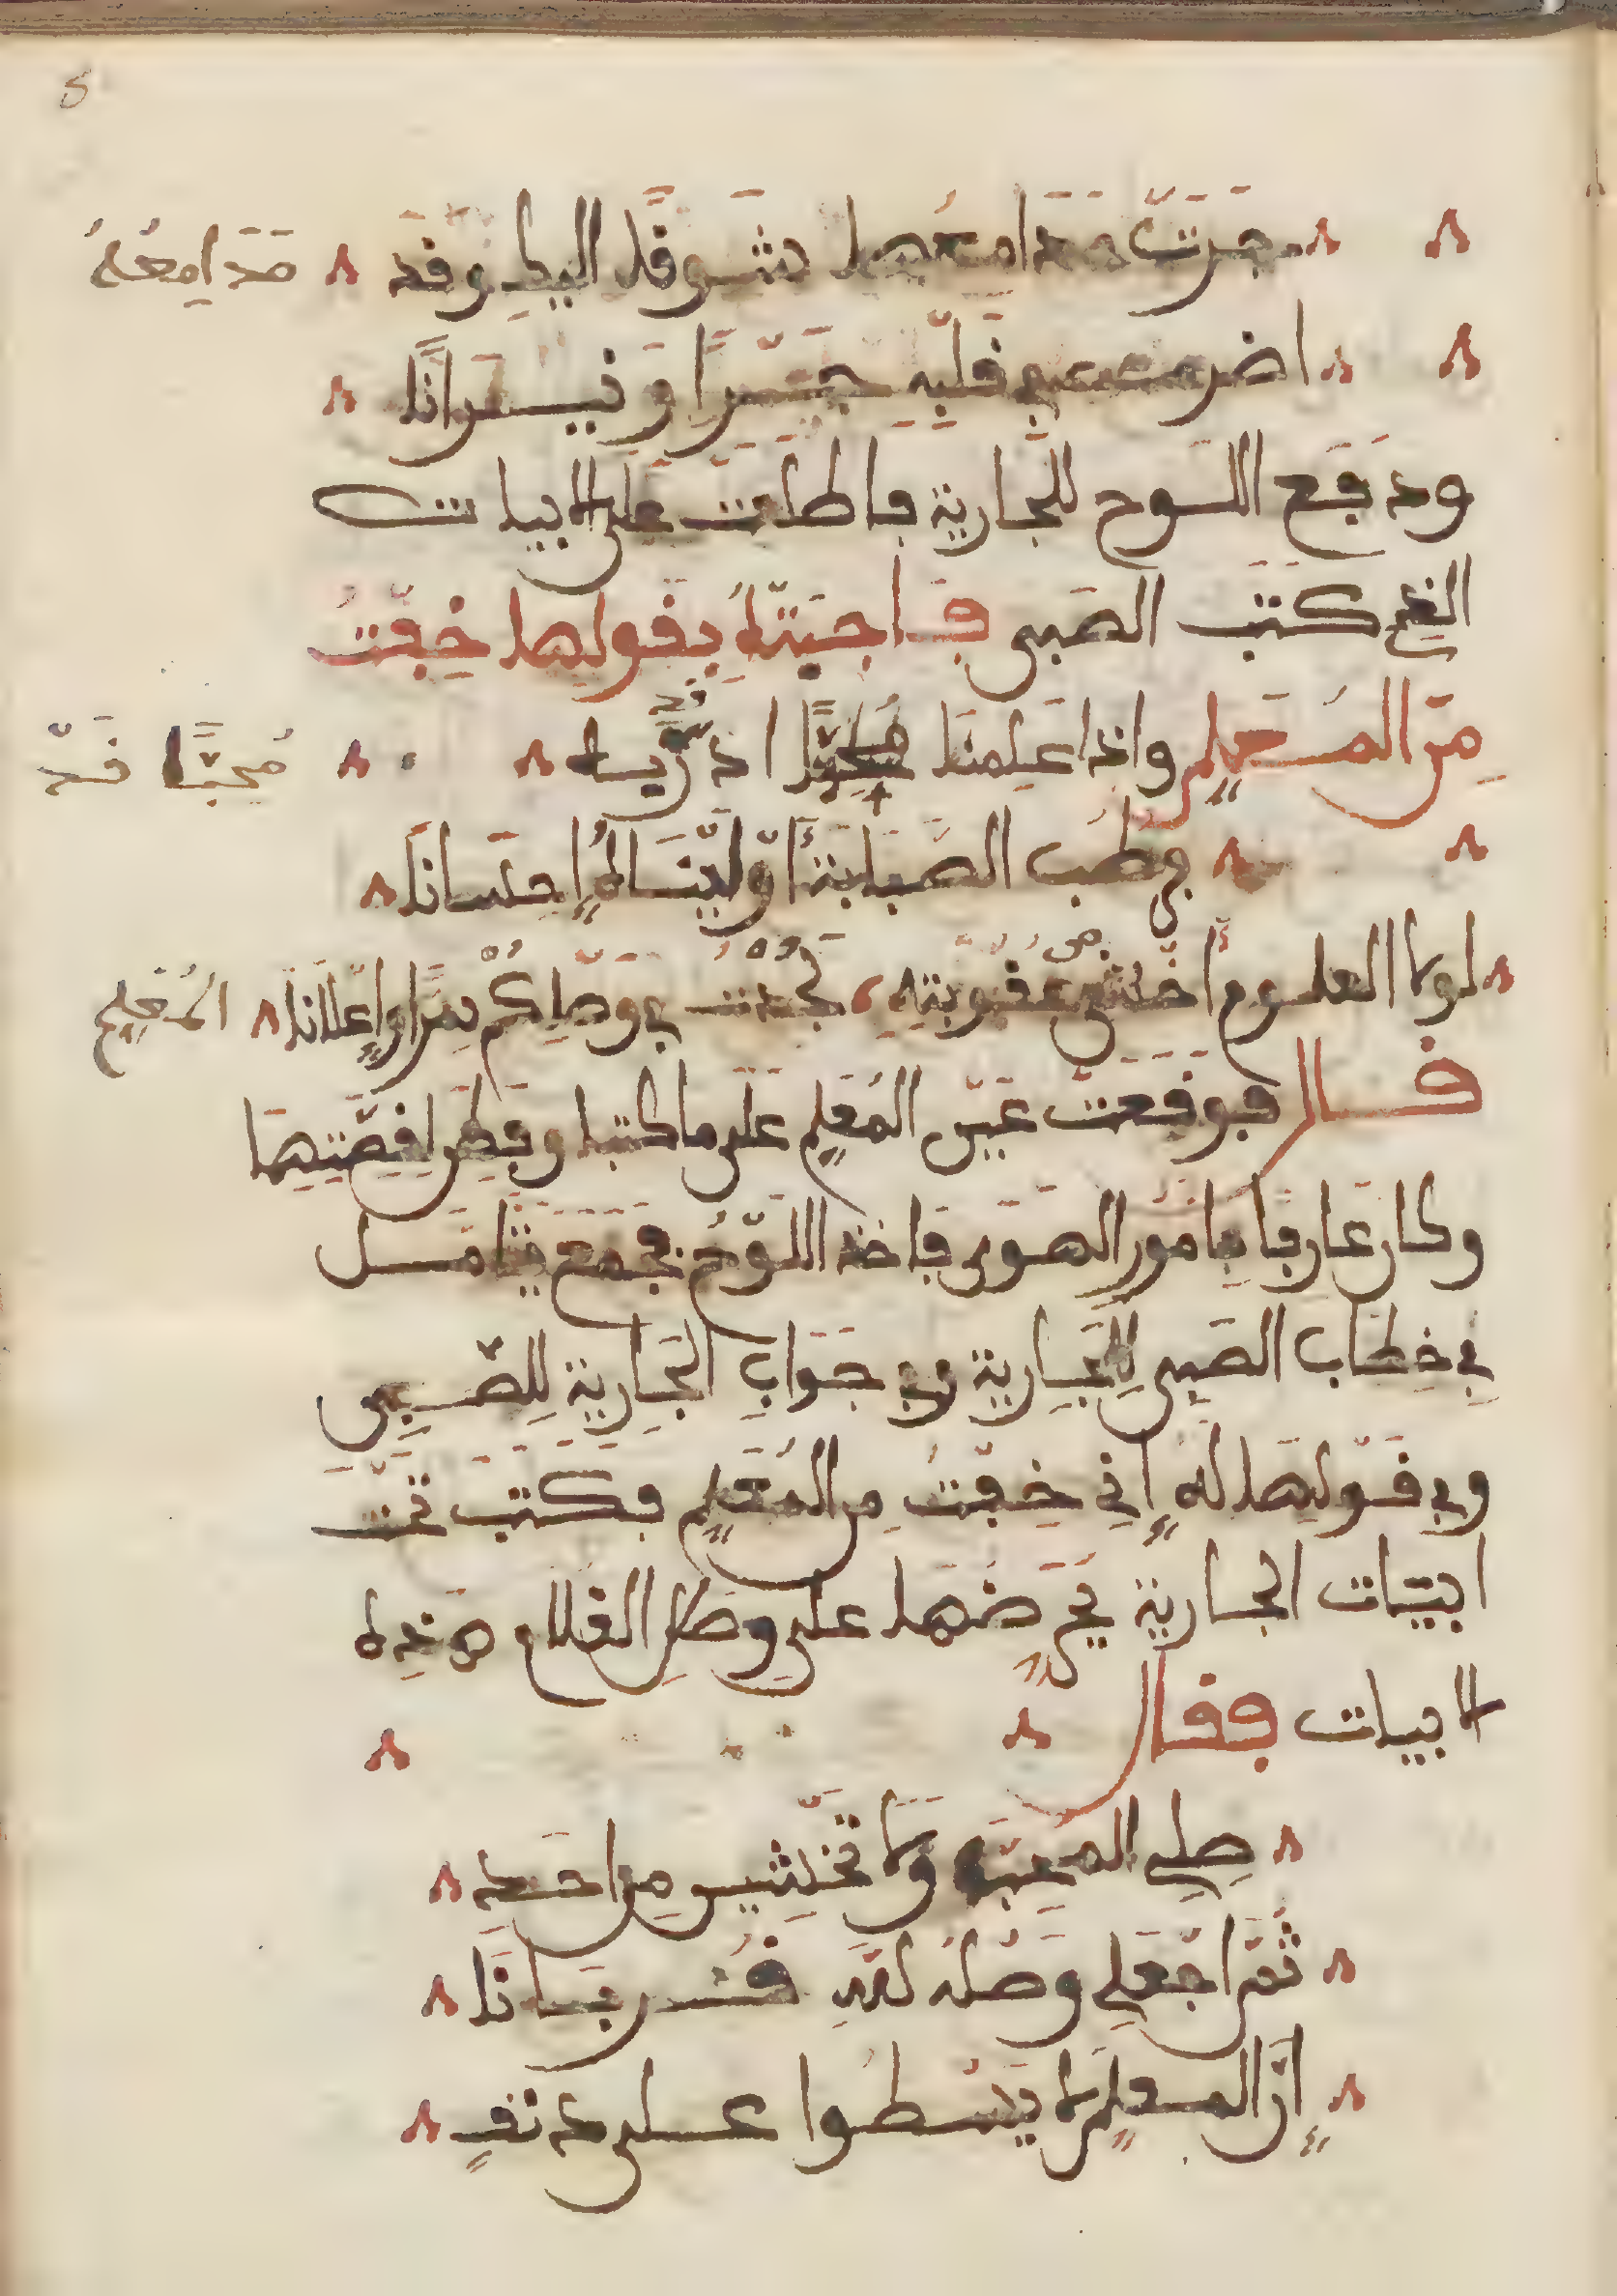 جرت مدامعها شوقا اليك وقد مدامعه
اضرمت في قلبه جمرا و نيرانا
ودفع اللوح للجارية فاطلعت على الابيات
الذي كتب الصبي فاجبته بقولها خفت
من المعلم واذا علمنا محبا اذ قد محبا قد
في طب الصبابة اولينا له إحسانا
لولا العلوم أخشى من عقوبته لجدت في وصلكم سرا وإعلانا المعلم
قال فوقعت عين المعلم على ما كتبا وفطن لقصتهما
وكان عارفا بامور الهوى فاخذ اللوح فجمع يتامل
في خطاب الصبي للجارية وفي جواب الجارية للصبي
وفي قولها له إني خفت من المعلم فكتب تحت
ابيات الجارية يحرضها على وصل الغلام هذه
الابيات فقال
صلي المحبة ولا تخشين من احد
ثم اجعلي وصله لله قربانا
إن المعلم لا يسطوا على دنف